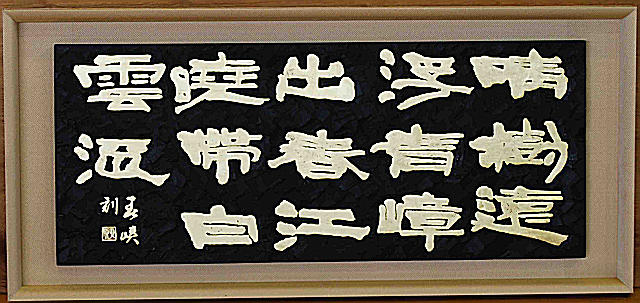 晴樹遠
浮青嶂
出春江
曉帶白
雲流
春峡
刻